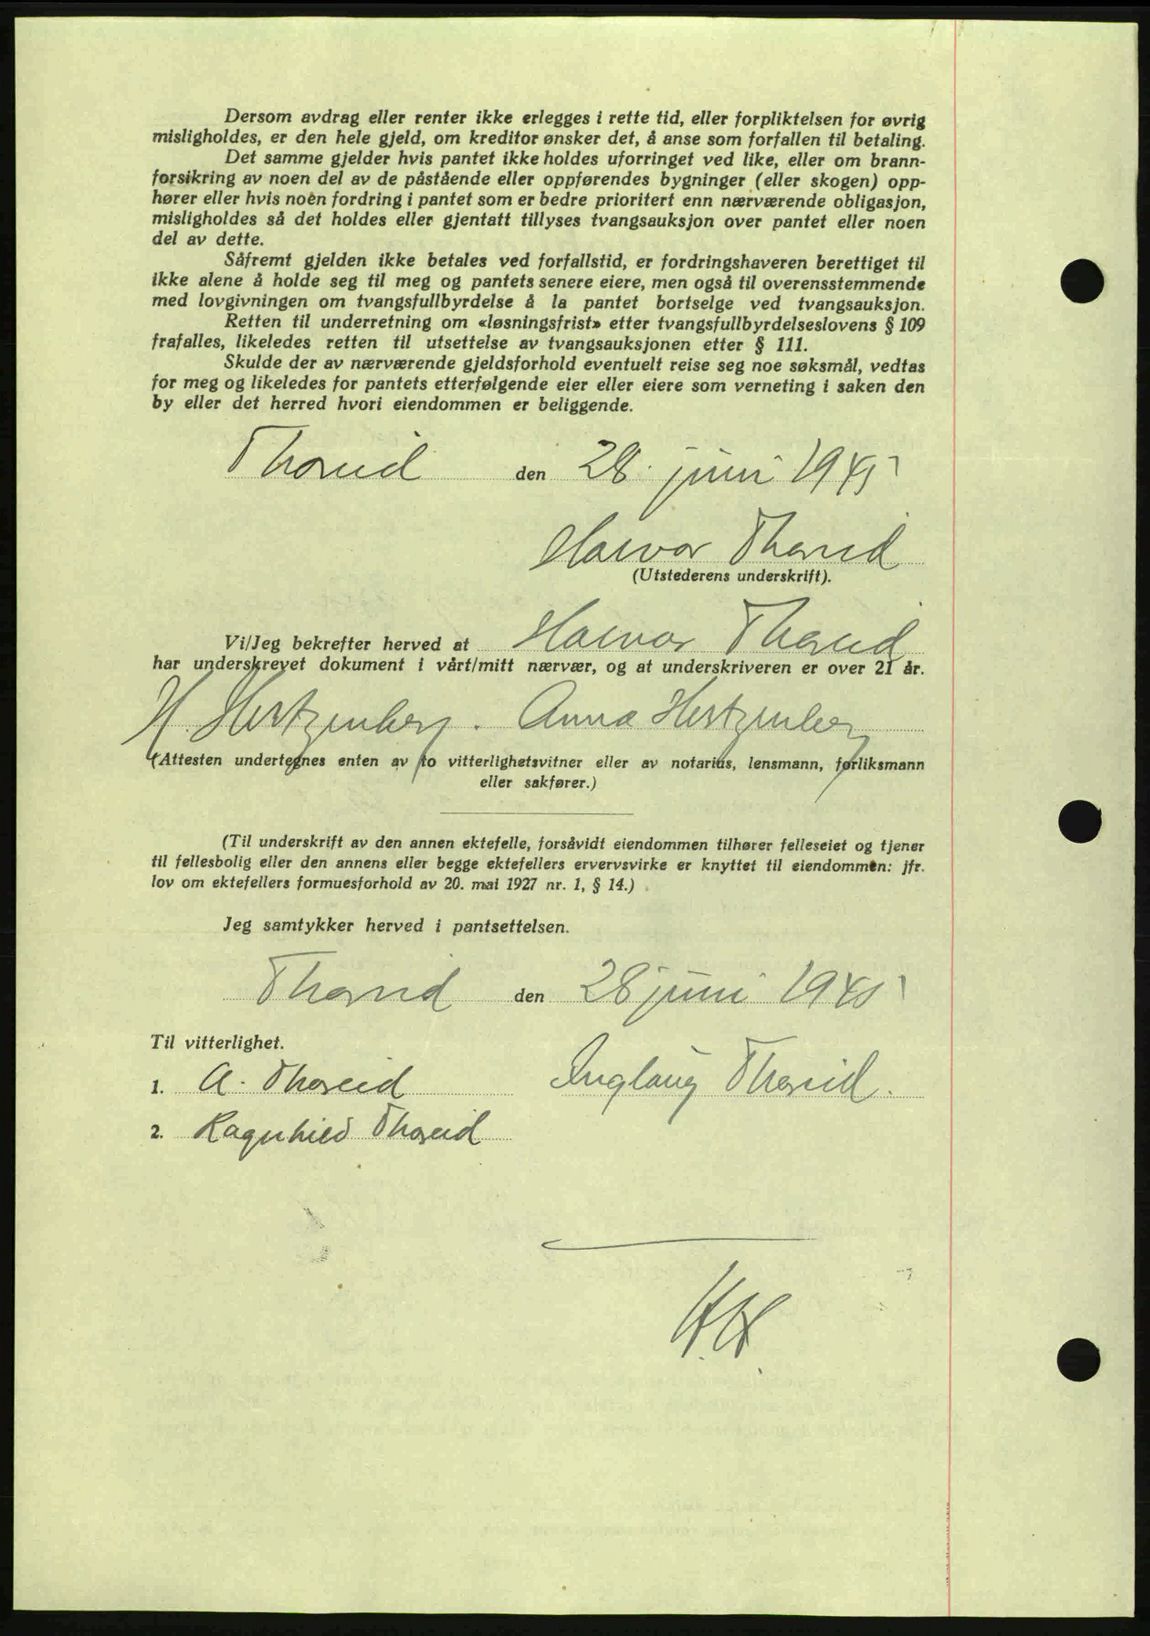 Dersom avdrag eller renter ikke erlegges i rette tid, eller forpliktelsen for øvrig
misligholdes, er den hele gjeld, om kreditor ønsker det, å anse som forfallen til betaling.
Det samme gjelder hvis pantet ikke holdes uforringet ved like, eller om brann-
forsikring av noen del av de påstående eller oppførendes bygninger (eller skogen) opp-
hører eller hvis noen fordring i pantet som er bedre prioritert enn nærværende obligasjon,
misligholdes så det holdes eller gjentatt tillyses tvangsauksjon over pantet eller noen
del av dette.
Såfremt gjelden ikke betales ved forfallstid, er fordringshaveren berettiget til
ikke alene å holde seg til meg og pantets senere eiere, men også til overensstemmende
med lovgivningen om tvangsfullbyrdelse å la pantet bortselge ved tvangsauksjon.
Retten til underretning om «løsningsfrist» etter tvangsfullbyrdelseslovens § 109
frafalles, likeledes retten til utsettelse av tvangsauksjonen etter § 111.
Skulde der av nærværende gjeldsforhold eventuelt reise seg noe søksmål, vedtas
for meg og likeledes for pantets etterfølgende eier eller eiere som verneting i saken den
by eller det herred hvori eiendommen er beliggende.
Thoreid den 28. juni 1945
Halvor Thoreid
(Utstederens underskrift).
Vi/Jeg bekrefter herved at Halvor Thoreid
har underskrevet dokument i vårt/mitt nærvær, og at underskriveren er over 21 år.
H. Hertzenberg. Anna Hertzenberg
(Attesten undertegnes enten av to vitterlighetsvitner eller av notarius, lensmann, forliksmann
eller sakfører.)
(Til underskrift av den annen ektefelle, forsåvidt eiendommen tilhører felleseiet og tjener
til fellesbolig eller den annens eller begge ektefellers ervervsvirke er knyttet til eiendommen: jfr.
lov om ektefellers formuesforhold av 20. mai 1927 nr. 1, § 14.)
Jeg samtykker herved i pantsettelsen.
Thoreid den 28 juni 1945
Til vitterlighet.
1. A. Thoreid Inglaug Thoreid.
2. Ragnhild Thoreid
H.H.